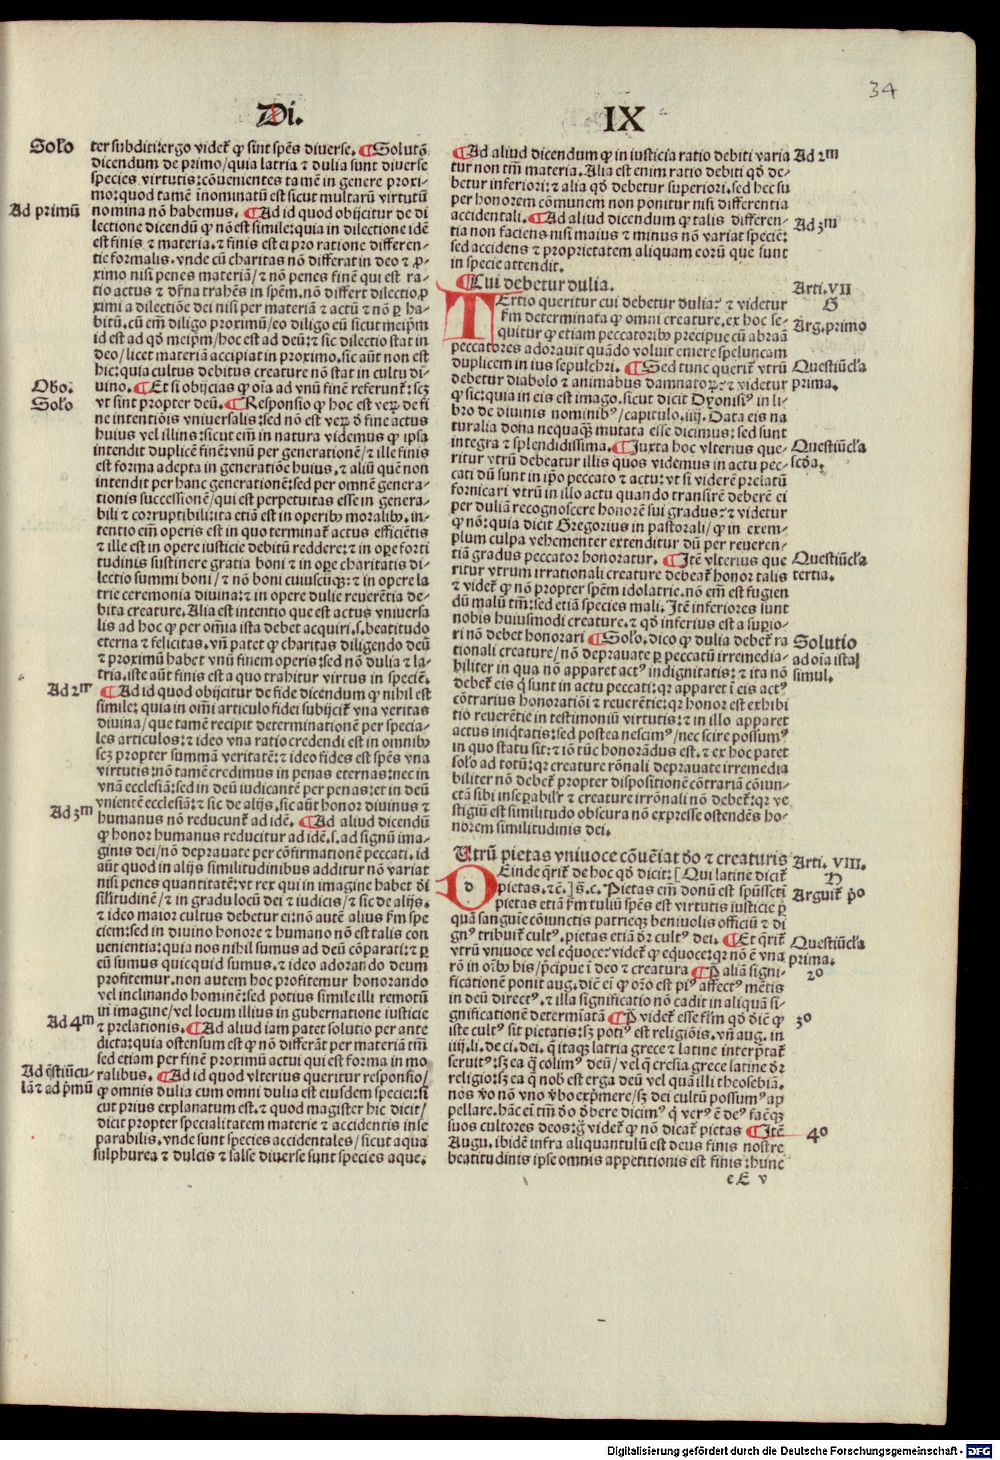 34
Di.
IX
Solo
ter subditi: ergo videt̄ ꝙ sint spēs diverse. ¶ Solutō
dicendum de primo/quia latria ⁊ dulia sunt diverse
species virtutis: cōvenientes tamē in genere proxi-
mo: quod tamē inominatū est sicut multarū virtutū
Ad primū
nomina nō habemus. ¶ Ad id quod obijcitur de di
lectione dicendū ꝙ nō est simile: quia in dilectione idē
est finis ⁊ materia. ⁊ finis est ei pro ratione differen-
tie formalis. vnde cū charitas nō differat in deo ⁊ ꝓ-
ximo nisi penes materiā/⁊ nō penes finē qui est ra-
tio actus ⁊ dr̄na trahēs in spēm. nō differt dilectio ꝓ
ximi a dilectiōe dei nisi per materiā ⁊ actū ⁊ nō ꝑ ha-
bitū. cū em̄ diligo proximū/eo diligo eū sicut meip̄m
id est ad qd̄ meip̄m/hoc est ad deū: ⁊ sic dilectio stat in
deo/licet materiā accipiat in proximo. sic aūt non est
hic: quia cultus debitus creature nō stat in cultu di-
Obo:
vino. ¶ Et si obijcias ꝙ oīa ad vnū finē referunt̄: scꝫ
Solo
vt sint propter deū. ¶ Responsio ꝙ hoc est verꝭ de fi
ne intentiōis vniversalis: sed nō est verꝭ d̄ fine actus
huius vel illius: sicut em̄ in natura videmus ꝙ ipsa
intendit duplicē finē: vnū per generationē/⁊ ille finis
est forma adepta in generatiōe huius. ⁊ aliū quē non
intendit per hanc generationē: sed per omnē genera-
tionis successionē/qui est perpetuitas esse in genera-
bili ⁊ corruptibili: ita etiā est in operibꝫ moralibꝫ. in-
tentio em̄ operis est in quo terminat̄ actus efficiētis
⁊ ille est in opere iusticie debitū reddere: ⁊ in oꝑe forti
tudinis sustinere gratia boni ⁊ in oꝑe charitatis di-
lectio summi boni/⁊ nō boni cuiuscūqꝫ: ⁊ in opere la
trie ceremonia divina: ⁊ in opere dulie reverētia de-
bita creature. Alia est intentio que est actus vniversa
lis ad hoc ꝙ per om̄ia ista debet acquiri. s. beatitudo
eterna ⁊ felicitas. vn̄ patet ꝙ charitas diligendo deū
⁊ proximū habet vnū finem operis: sed nō dulia ⁊ la-
tria. iste aūt finis est a quo trahitur virtus in speciē.
Ad 2m
¶ Ad id quod obijcitur de fide dicendum ꝙ nihil est
simile: quia in om̄i articulo fidei subijcit̄ vna veritas
divina/que tamē recipit determinationē per specia-
les articulos: ⁊ ideo vna ratio credendi est in omnibꝫ
scꝫ propter summā veritatē: ⁊ ideo fides est spēs vna
virtutis: nō tamē credimus in penas eternas: nec in
vnā ecclesiā: sed in deū iudicantē per penas: et in deū
vnientē ecclesiā: ⁊ sic de alijs. sic aūt honor divinus ⁊
Ad 3m
humanus nō reducunt̄ ad idē. ¶ Ad aliud dicendū
ꝙ honor humanus reducitur ad idē. s. ad signū ima-
ginis dei/nō depravate per cōfirmationē peccati. id
aūt quod in alijs similitudinibus additur nō variat
nisi penes quantitatē: vt rex qui in imagine habet d̄i
silitudinē/⁊ in gradu locū dei ⁊ iudicis/⁊ sic de alijs.
⁊ ideo maior cultus debetur ei: nō autē alius ẜm spe
ciem: sed in divino honore ⁊ humano nō est talis con
venientia: quia nos nihil sumus ad deū cōparati: ⁊ ꝑ
eū sumus quicquid sumus. ⁊ ideo adorando deum
profitemur. non autem hoc profitemur honorando
vel inclinando hominē: sed potius simile illi remotū
in imagine/vel locum illius in gubernatione iusticie
Ad 4m
⁊ prelationis. ¶ Ad aliud iam patet solutio per ante
dicta: quia ostensum est ꝙ nō differāt per materiā tm̄
sed etiam per finē proximū actui qui est forma in mo
Ad q̄stiūcu-
ralibus. ¶ Ad id quod vlterius queritur responsio/
lā ⁊ ad pͥmū
ꝙ omnis dulia cum omni dulia est eiusdem speciei: si
cut prius explanatum est. ⁊ quod magister hic dicit/
dicit propter specialitatem materie ⁊ accidentis inse
parabilis. vnde sunt species accidentales/sicut aqua
sulphurea ⁊ dulcis ⁊ salse diverse sunt species aque.
¶ Ad aliud dicendum ꝙ in iusticia ratio debiti varia
Ad 2m
tur non tm̄ materia. Alia est enim ratio debiti qd̄ de-
betur inferiori: ⁊ alia qd̄ debetur superiori. sed hec su
per honorem cōmunem non ponitur nisi differentia
accidentali. ¶ Ad aliud dicendum ꝙ talis differen-
Ad 3m
tia non faciens nisi maius ⁊ minus nō variat speciē:
sed accidens ⁊ proprietatem aliquam eorū que sunt
in specie attendit.
¶ Cui debetur dulia.
Arti. VII
TErtio queritur cui debetur dulia: ⁊ videtur
G
ẜm determinata ꝙ omni creature. ex hoc se-
Arg. primo
quitur ꝙ etiam peccatoribꝫ precipue cū abraā
peccatores adoravit quādo voluit emere speluncam
duplicem in ius sepulchri. ¶ Sed tunc querit̄ vtrū
Questiūcl'a
debetur diabolo ⁊ animabus damnatorꝭ: ⁊ videtur
prima.
ꝙ sic: quia in eis est imago. sicut dicit Dyonisiꝰ in li-
bro de divinis nominibꝫ/capitulo. iiij. Data eis na
turalia dona nequaqꝫ mutata esse dicimus: sed sunt
integra ⁊ splendidissima. ¶ Juxta hoc vlterius que-
Questiūcl'a
ritur vtrū debeatur illis quos videmus in actu pec-
scd̄a.
cati dū sunt in ip̄o peccato ⁊ actu: vt si viderē prelatū
fornicari vtrū in illo actu quando transirē deberē ei
per duliā recognoscere honorē sui gradus: ⁊ videtur
ꝙ nō: quia dicit Gregorius in pastorali/ꝙ in exem-
plum culpa vehementer extenditur dū per reveren-
tiā gradus peccator honoratur. ¶ Itē vlterius que
Questiūcl'a
ritur vtrum irrationali creature debeat̄ honor talis
tertia.
⁊ videt̄ ꝙ nō propter spēm idolatrie. nō em̄ est fugien
dū malū tm̄: sed etiā species mali. Itē inferiores sunt
nobis huiusmodi creature. ⁊ qd̄ inferius est a suꝑio-
ri nō debet honorari ¶ Solo. dico ꝙ dulia debet̄ ra
Solutio
tionali creature/nō depravate ꝑ peccatū irremedia-
ad oīa ista
biliter in qua nō apparet actꝰ indignitatis: ⁊ ita nō
simul.
debet̄ eis q̄ sunt in actu peccati: qr apparet ī eis actꝰ
cōtrarius honoratiōi ⁊ reverētie: qr honor est exhibi
tio reverētie in testimoniū virtutis: ⁊ in illo apparet
actus iniqtatis: sed postea nescimꝰ/nec scire possumꝰ
in quo statu sit: ⁊ iō tūc honorādus est. ⁊ ex hoc patet
solo ad totū: qr creature rōnali depravate irremedia
biliter nō debet̄ propter dispositionē cōtrariā cōiun-
ctā sibi inseꝑabilr ⁊ creature irrōnali nō debet̄: qr ve
stigiū est similitudo obscura nō expresse ostendēs ho-
norem similitudinis dei.
Utrū pietas vnivoce cōveniat d̄o ⁊ creaturis
Arti. VIII.
DEinde q̄rit̄ de hoc qd̄ dicit: [Qui latine dicit̄
H
pietas. ⁊c.] ⁊ s̄. c. Pietas em̄ donū est spūssct̄i
Arguit̄ pͥo
pietas etiā ẜm tuliū spēs est virtutis iusticie ꝑ
quā sanguīe cōiunctis patrieqꝫ benivolis officiū ⁊ di
gnꝰ tribuit̄ cultꝰ. pietas etiā dr̄ cultꝰ dei. ¶ Et q̄rit̄
Questiūcl'a
vtrū vnivoce vel equoce: videt̄ ꝙ equoce: qr nō ē vna
prima.
rō in oībꝫ his/pͥcipue ī deo ⁊ creatura ¶ P̄ aliā signi-
2o
ficationē ponit aug. diē ei ꝙ orō est piꝰ affectꝰ mētis
in deū directꝰ. ⁊ illa significatio nō cadit in aliquā si-
gnificationē determīatā ¶ P̄ videt̄ esse ẜm qd̄ diē ꝙ
3o
iste cultꝰ sit pietatis: sꝫ potiꝰ est religiōis. vn̄ aug. in
iiij. li. de ci. dei. q̄ itaqꝫ latria grece ⁊ latine interp̄tat̄
servitꝰ: sꝫ ea q̄ colimꝰ deū/vel q̄ cresia grece latine dr̄
religio: sꝫ ea q̄ nob̄ est erga deū vel quā illi theosebiā.
nos v̄o nō vno v̄bo exp̄mere/sꝫ dei cultū possumꝰ ap
pellare. hāc ei tm̄ d̄o d̄bere dicimꝰ q̄ verꝰ ē deꝰ facqꝫ
suos cultores deos: ḡ videt̄ ꝙ nō dicat̄ pietas ¶ Itē
4o
Augu. ibidē infra aliquantulū est deus finis nostre
beatitudinis ipse omnis appetitionis est finis: hunc
eE v
Digitalisierung gefördert durch die Deutsche Forschungsgemeinschaft - DFG